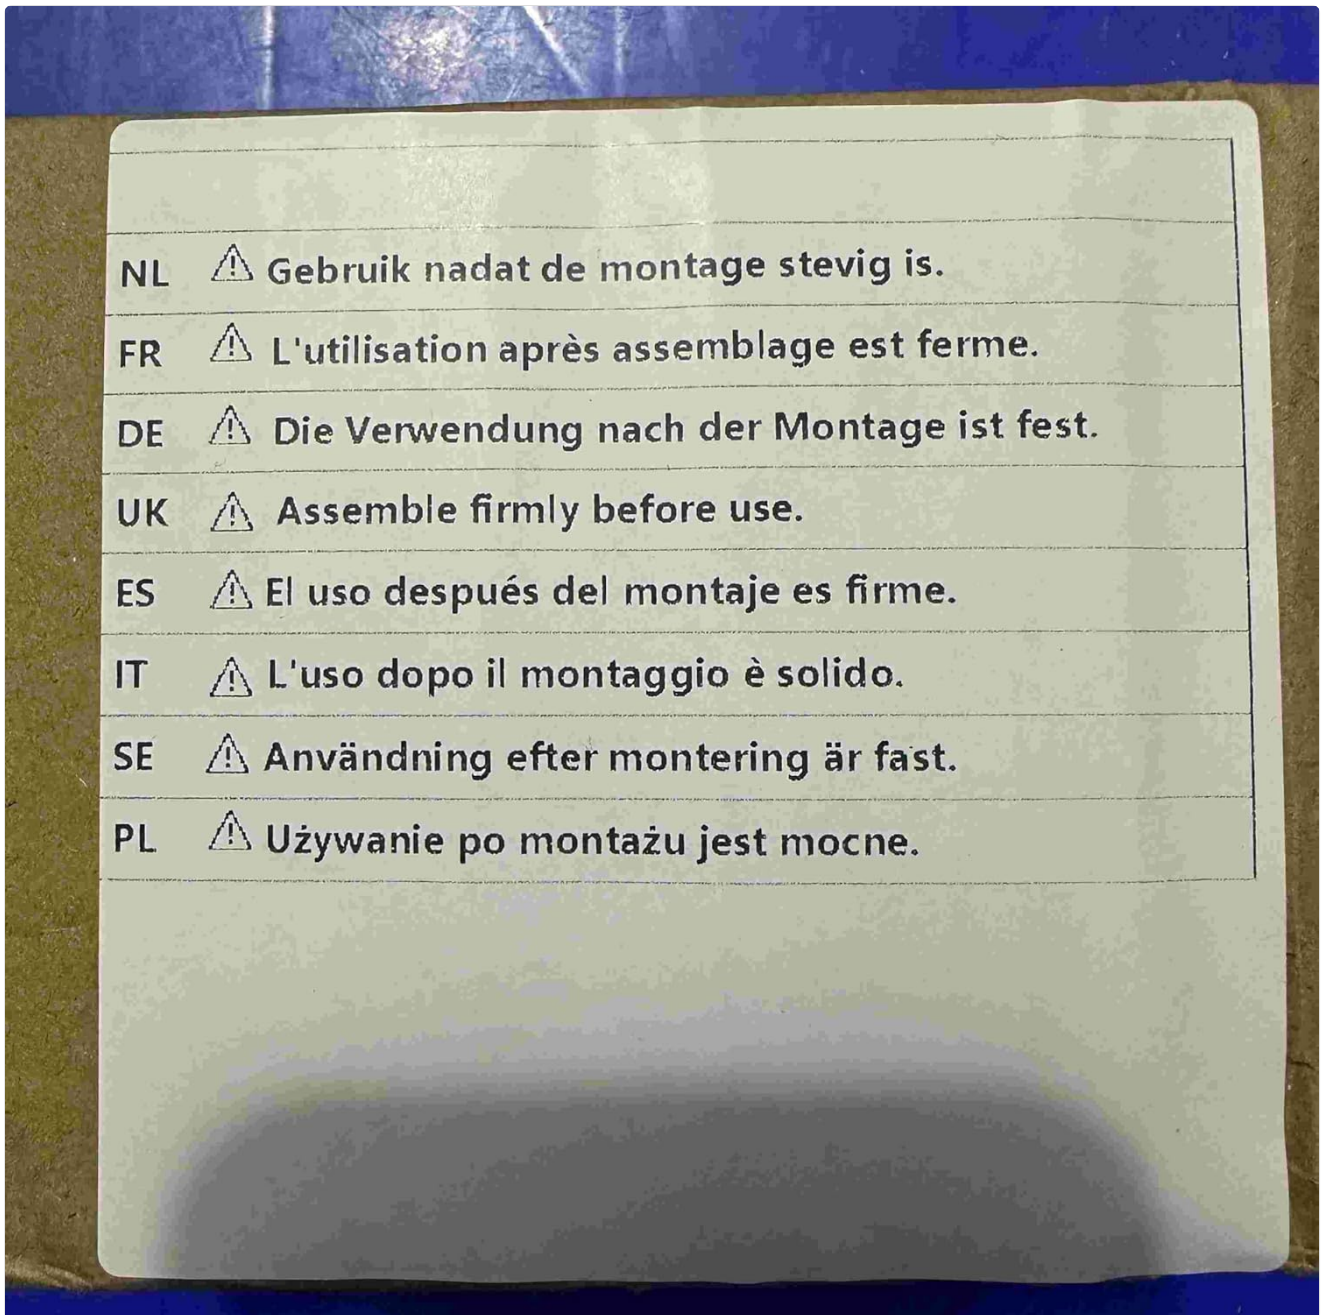 NL ⚠ Gebruik nadat de montage stevig is.
FR ⚠ L'utilisation après assemblage est ferme.
DE ⚠ Die Verwendung nach der Montage ist fest.
UK ⚠ Assemble firmly before use.
ES ⚠ El uso después del montaje es firme.
IT ⚠ L'uso dopo il montaggio è solido.
SE ⚠ Användning efter montering är fast.
PL ⚠ Używanie po montażu jest mocne.